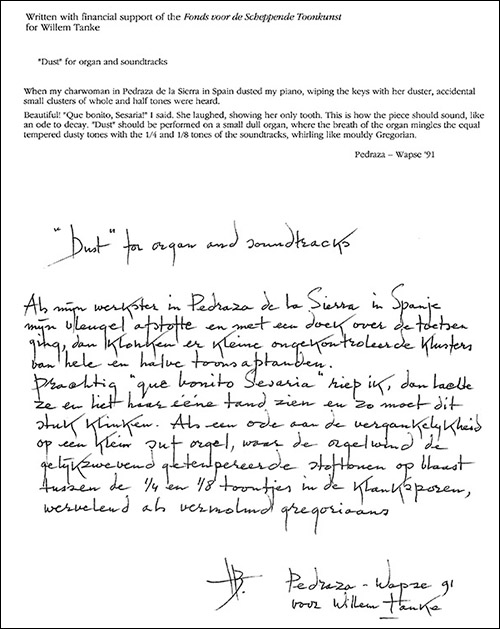 Written with financial support of the Fonds voor de Scheppende Toonkunst
for Willem Tanke
"Dust" for organ and soundtracks
When my charwoman in Pedraza de la Sierra in Spain dusted my piano, wiping the keys with her duster, accidental
small clusters of whole and half tones were heard.
Beautiful! "Que bonito, Sesaria!" I said. She laughed, showing her only tooth. This is how the piece should sound, like
an ode to decay. "Dust" should be performed on a small dull organ, where the breath of the organ mingles the equal
tempered dusty tones with the 1/4 and 1/8 tones of the soundtracks, whirling like mouldy Gregorian.
Pedraza – Wapse '91
"Dust" for organ and soundtracks
Als mijn werkster in Pedraza de la Sierra in Spanje
mijn vleugel afstofte en met een doek over de toetsen
ging, dan klonken er kleine ongekontroleerde klusters
van hele en halve toonsafstanden.
Prachtig "que bonito Sesaria" riep ik, dan lachte
ze en liet haar ééne tand zien en zo moet dit
stuk klinken. Als een ode aan de vergankelijkheid
op een klein suf orgel, waar de orgelwind de
gelijkzwevend getempereerde stoftonen op blaast
tussen de 1/4 en 1/8 toontjes in de klanksporen,
wervelend als vermolmd gregoriaans
HB. Pedraza - Wapse 91
voor Willem Tanke